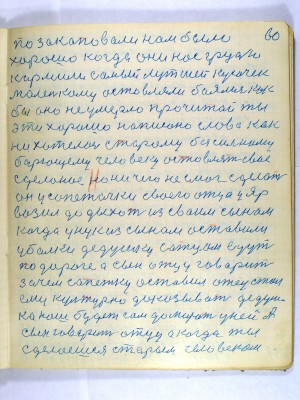 по закаповали нам было 60
хорошо когда они нас грудю
кармили самый лутший кусочек
маленкому оставляли баялис как
бы оно не умерло прочитай ты
эти хорошо написано слова как
ни хотелос старому бисилному
барющему человеку оставлят свае
сделоное но ничего не смог сделат
он у сапеточки своего отца у Яр
вазил до двохот из сваим сыном
когда унук из сыном оставили
у балки дедушку сатцом едут
по дароге а сын отцу гаварит
зачем сапетку оставил отец стал
ему културно доказыват дедуш-
ка наш будет сам домират у ней а
сын говорит отцу а когда ты
сделаешся старым человеком